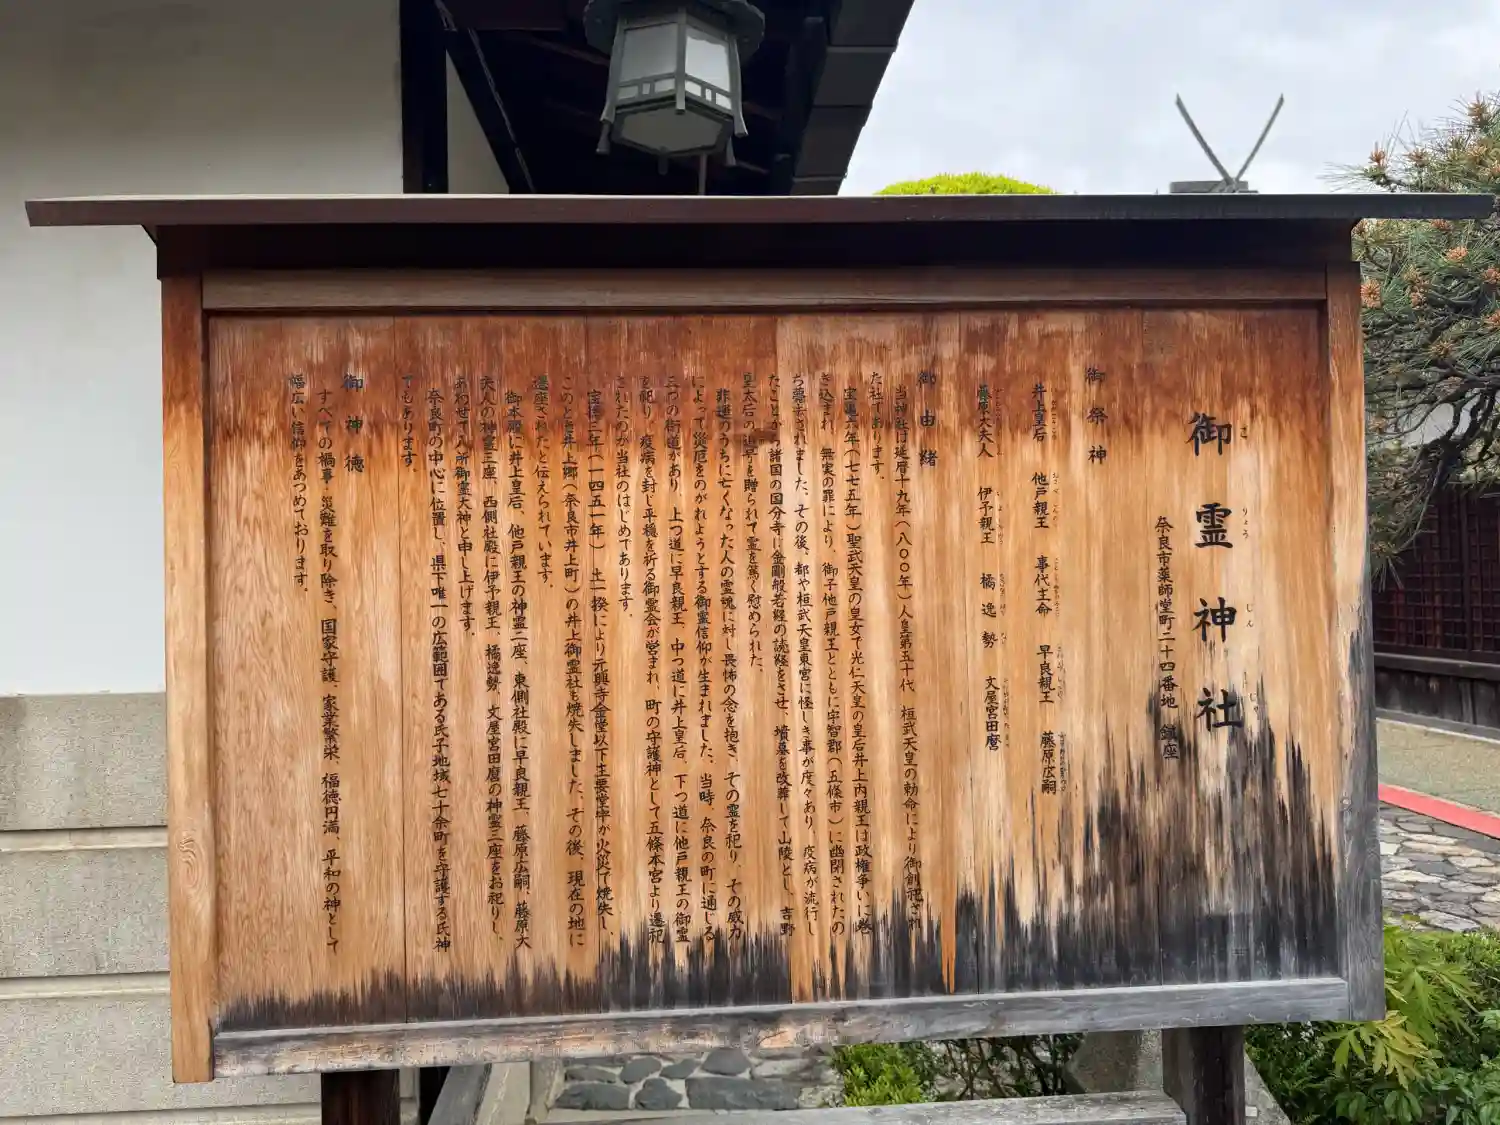 御霊神社
ご りょう じん じゃ
奈良市薬師堂町二十四番地 鎮座
御祭神
井上皇后 他戸親王 事代主命 早良親王 藤原広嗣
藤原大夫人 伊予親王 橘逸勢 文屋宮田麿
御由緒
当神社は延暦十九年(八〇〇年)人皇第五十代 桓武天皇の勅命により御創祀され
た社であります。
宝亀六年(七七五年)聖武天皇の皇女で光仁天皇の皇后井上内親王は政権争いに巻
き込まれ、無実の罪により、御子他戸親王とともに宇智郡(五條市)に幽閉されたの
ち薨去されました。その後、都や桓武天皇東宮に怪しき事が度々あり、疫病が流行し
たことから諸国の国分寺に金剛般若経の読経をさせ、墳墓を改葬して山陵とし、吉野
皇太后の追号を贈られて霊を篤く慰められた。
非運のうちに亡くなった人の霊魂に対し畏怖の念を抱き、その霊を祀り、その威力
によって災厄をのがれようとする御霊信仰が生まれました。当時、奈良の町に通じる
三つの街道があり、上つ道に早良親王、中つ道に井上皇后、下つ道に他戸親王の御霊
を祀り、疫病を封じ平穏を祈る御霊会が営まれ、町の守護神として五條本宮より遷祀
されたのが当社のはじめであります。
宝徳三年(一四五一年) 土一揆により元興寺金堂以下主要堂宇が火災で焼失し、
このとき井上郷(奈良市井上町)の井上御霊社も焼失しました。その後、現在の地に
遷座されたと伝えられています。
御本殿に井上皇后、他戸親王の神霊二座、東側社殿に早良親王、藤原広嗣、藤原大
夫人の神霊三座、西側社殿に伊予親王、橘逸勢、文屋宮田麿の神霊三座をお祀りし、
あわせて八所御霊大神と申し上げます。
奈良町の中心に位置し、県下唯一の広範囲である氏子地域七十余町を守護する氏神
でもあります。
御神徳
すべての禍事・災難を取り除き、国家守護、家業繁栄、福徳円満、平和の神として
幅広い信仰をあつめております。